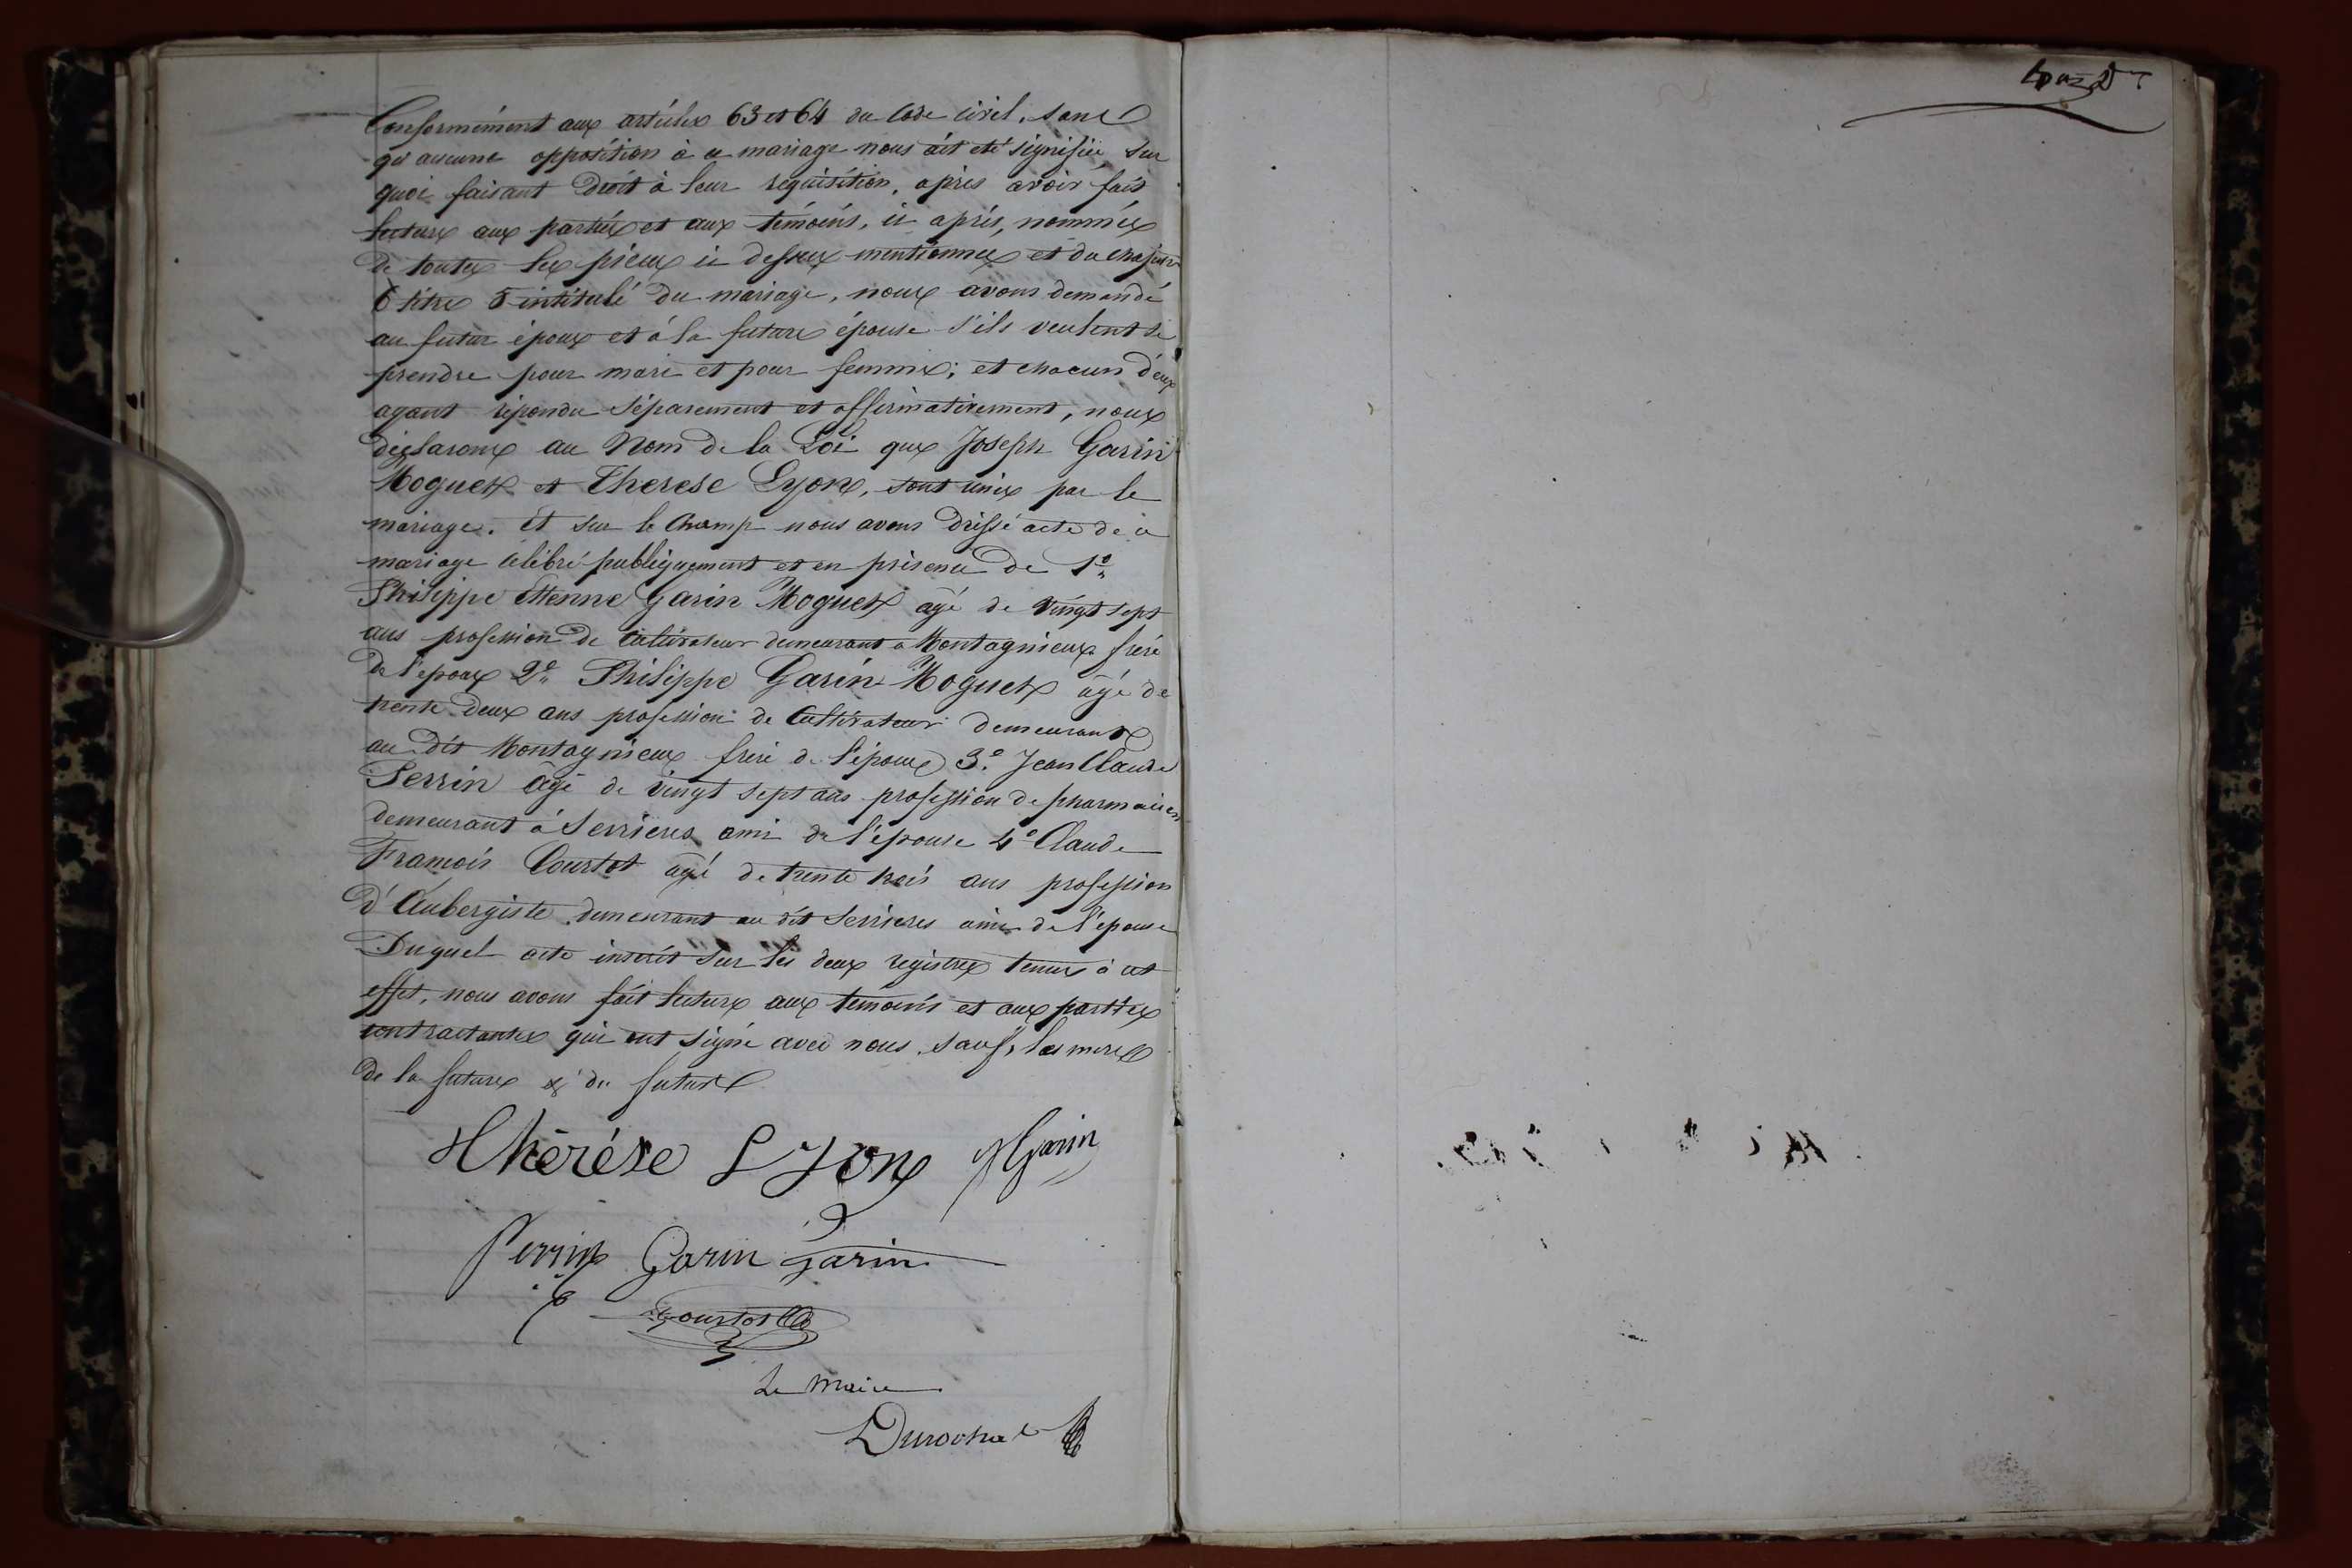 Conformément aux articles 63 et 64 du Code Civil, sans
qu'aucune opposition à ce mariage nous ait eté signifiée, sur
quoi faisant Droit à leur requisition, après avoir fait
lecture aux parties et aux témoins, ci après, nommés
de toutes les pièces ci dessus mentionnées et du chapitre
6 titre 5 intitulé du mariage, nous avons demandé
au futur époux et à la future épouse s'ils veulent se
prendre pour mari et pour femme; et chacun d'eux
ayant répondu séparement et affirmativement, nous
déclarons au Nom de la Loi que Joseph Garin
Moguet et Therese Lyon, sont unis par le
mariage. Et sur le Champ nous avons Dressé acte de ce
mariage célébré publiquement et en présence de 1°
Philippe Etienne Garin Moguet âgé de vingt sept
ans profession de cultivateur demeurant a Montagnieux frère
de l'époux 2° Philippe Garin Moguet âgé de
trente deux ans profession de Cultivateur demeurant
au dit Montagnieux frère de l'époux 3° Jean Claude
Perrin âgé de vingt sept ans profession de pharmacien
demeurant à Serrieres ami de l'épouse 4° Claude
François Courtot âgé de trente trois ans profession
d'Aubergiste demeurant au dit Serrieres ami de l'épouse
Duquel acte inscrit sur les deux registres tenus à cet
effet, nous avons fait lecture aux témoins et aux parties
contractantes qui ont signé avec nous, sauf, les meres
de la future & du futur
Thérése Lyon JGarin
Perrin Garin Garin
Courtot
Le Maire
Durochat